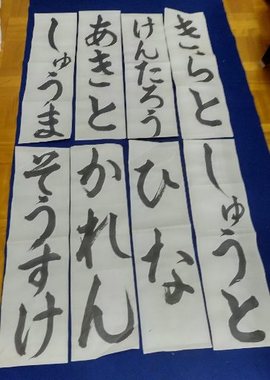 きらと
けんたろう
あきと
しゅうま
しゅうと
ひな
かれん
そうすけ